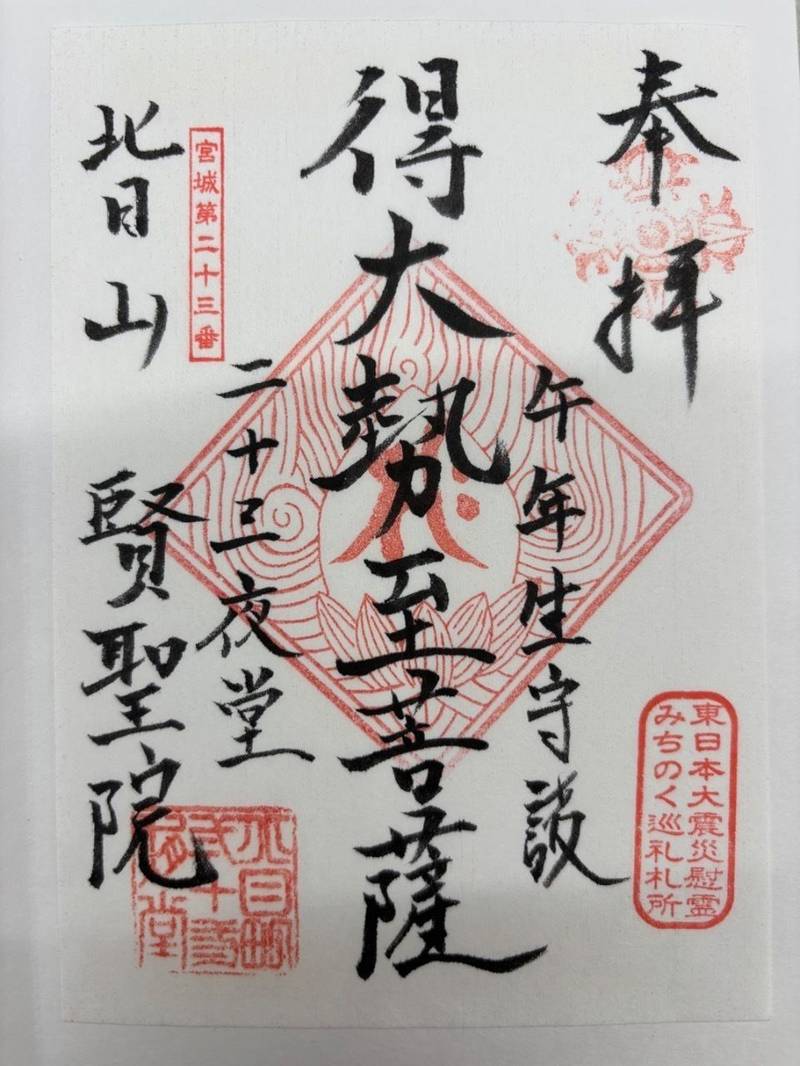 奉拝
東日本大震災慰霊
みちのく巡礼札所
午年生守護
得大勢至菩薩
二十三夜堂
宮城第二十三番
北目山 賢聖院